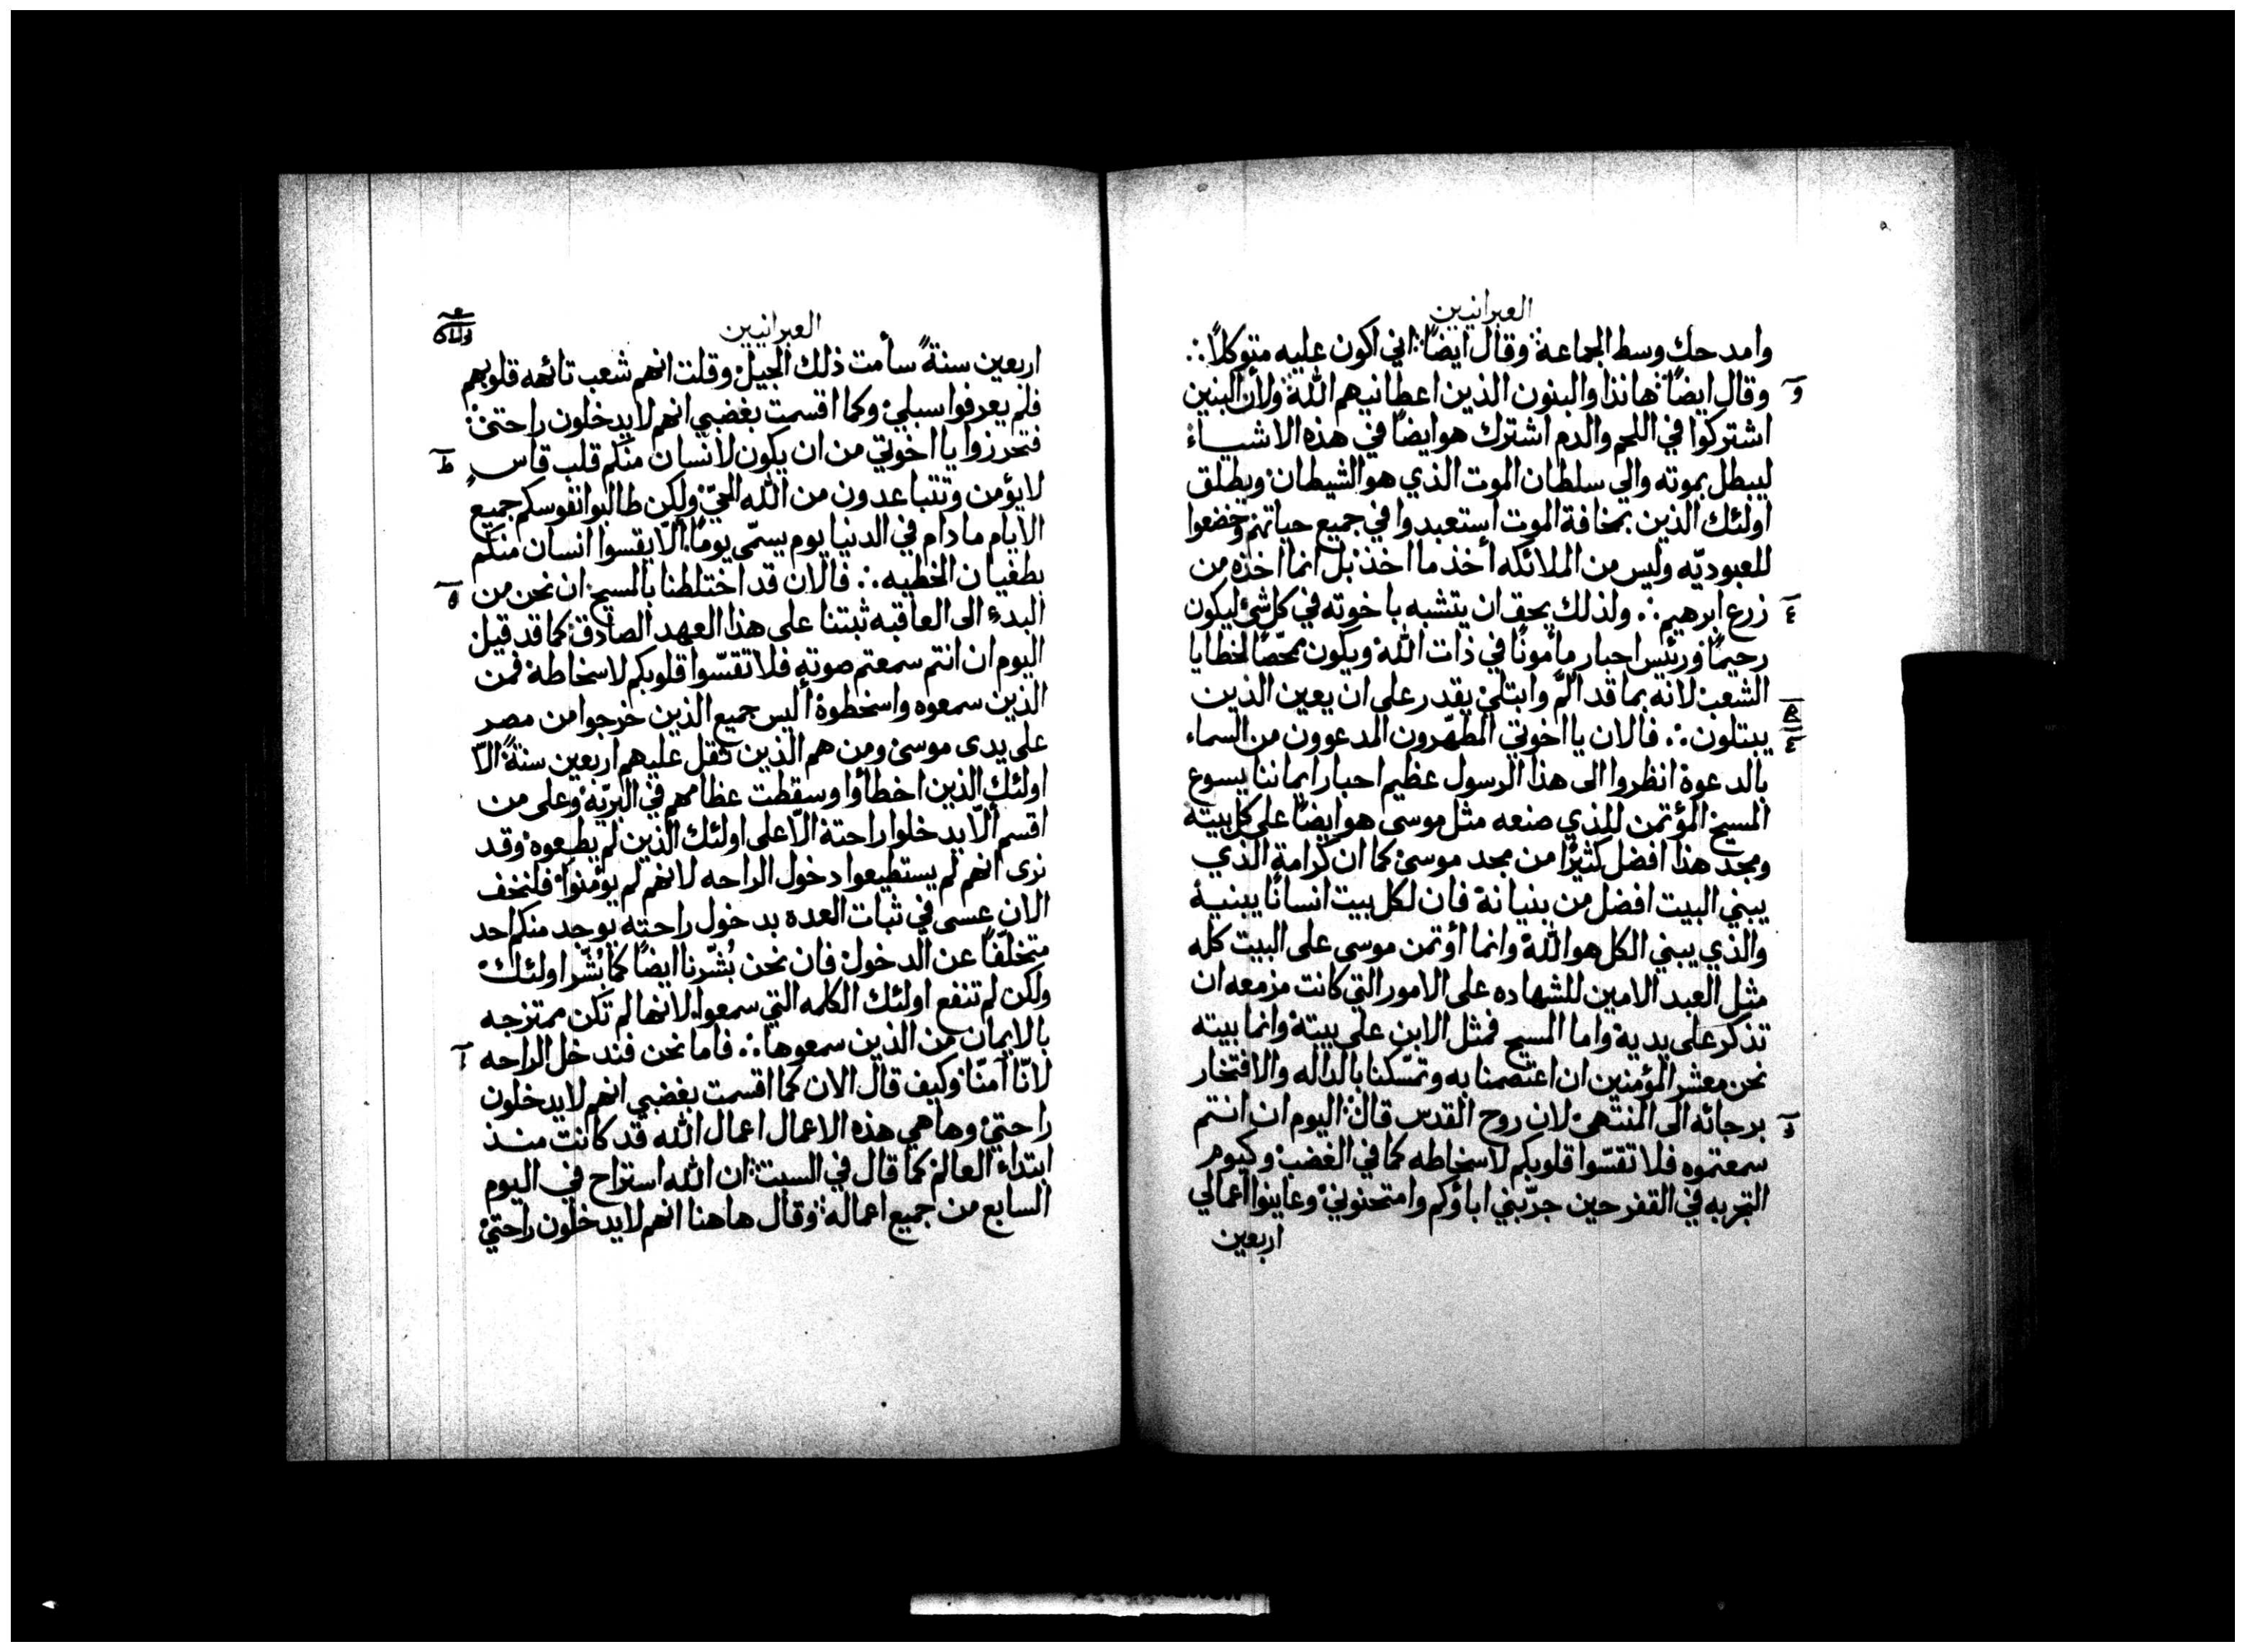 العبرانيين
وامدحك وسط الجماعة وقال ايضًا اني اكون عليه متوكلًا ∴
وقال ايضًا هانذا والبنون الذين اعطانيهم الله ولأن البنين
اشتركوا في اللحم والدم اشترك هو ايضًا في هذه الاشياء
ليبطل بموته والي سلطان الموت الذي هو الشيطان ويطلق
اولئك الذين بمخافة الموت استعبدوا في جميع حياتهم وخضعوا
للعبوديّه وليس من الملائكه أخذ ما اخذ بل انما اخذه من
زرع ابرهيم ∴ ولذلك يحق ان يتشبه باخوته في كل شئ ليكون
رحيمًا ورئيس احبار مأمونًا في ذات الله ويكون ممحّصًا لخطايا
الشعب لانه بما قد ألم وابتلي يقدر على ان يعين الذين
يبتلون ∴ فالان يا اخوتي المطهّرون المدعوون من السماء
بالدعوة انظروا الى هذا الرسول عظيم احبار ايماننا يسوع
المسيح المؤتمن للذي صنعه مثل موسى هو ايضًا على كل بيته
ومجد هذا افضل كثيرًا من مجد موسى كما ان كرامة الذي
يبني البيت افضل من بنيانه فان لكل بيت انسانًا يبنيه
والذي يبني الكل هو الله وانما أؤتمن موسى على البيت كله
مثل العبد الامين للشهاده على الامور التي كانت مزمعه ان
تذكر على يديه واما المسيح فمثل الابن على بيته وانما بيته
نحن معشر المؤمنين ان اعتصمنا به وتمسّكنا بالداله والافتخار
برجائه الى المنتهى لان روح القدس قال اليوم ان انتم
سمعتموه فلا تقسّوا قلوبكم لاسخاطه كما في الغضب وكيوم
التجربه في القفر حين جرّبني اباؤكم وامتحنوني وعاينوا اعمالي
اربعين
العبرانيين
اربعين سنةً سأمت ذلك الجيل وقلت انهم شعب تائهه قلوبهم
فلم يعرفوا سبلي وكما اقسمت بغضبي انهم لا يدخلون راحتي
فتحرزوا يا اخوتي من ان يكون لانسان منكم قلب قاسٍ
لا يؤمن وتتباعدون من الله الحيّ ولكن طالبوا نفوسكم جميع
الايام ما دام في الدنيا يوم يسمّى يومًا ألّا يقسوا انسان منكم
بطغيان الخطيه ∴ فالان قد اختلطنا بالمسيح ان نحن من
البدء الى العاقبه ثبتنا على هذا العهد الصادق كما قد قيل
اليوم ان انتم سمعتم صوته فلا تقسّوا قلوبكم لاسخاطه فمن
الذين سمعوه واسخطوه أليس جميع الذين خرجوا من مصر
على يدى موسى ومن هم الذين ثقل عليهم اربعين سنةً الّا
اولئك الذين اخطأوا وسقطت عظامهم في البريّه وعلى من
اقسم ألّا يدخلوا راحته الّا على اولئك الذين لم يطيعوه وقد
نرى انهم لم يستطيعوا دخول الراحه لانهم لم يؤمنوا فلنخف
الان عسى في ثبات العده بدخول راحته يوجد منكم احد
متخلّفًا عن الدخول فان نحن بُشّرنا ايضًا كما بُشّر اولئك
ولكن لم تنفع اولئك الكلمه التي سمعوا لانها لم تكن ممتزجه
بالايمان من الذين سمعوها ∴ فاما نحن فندخل الراحه
لانّا آمنّا وكيف قال الان كما اقسمت بغضبي انهم لا يدخلون
راحتي وها هي هذه الاعمال اعمال الله قد كانت منذ
ابتداء العالم كما قال في السبت ان الله استراح في اليوم
السابع من جميع اعماله وقال هاهنا انهم لا يدخلون راحتي